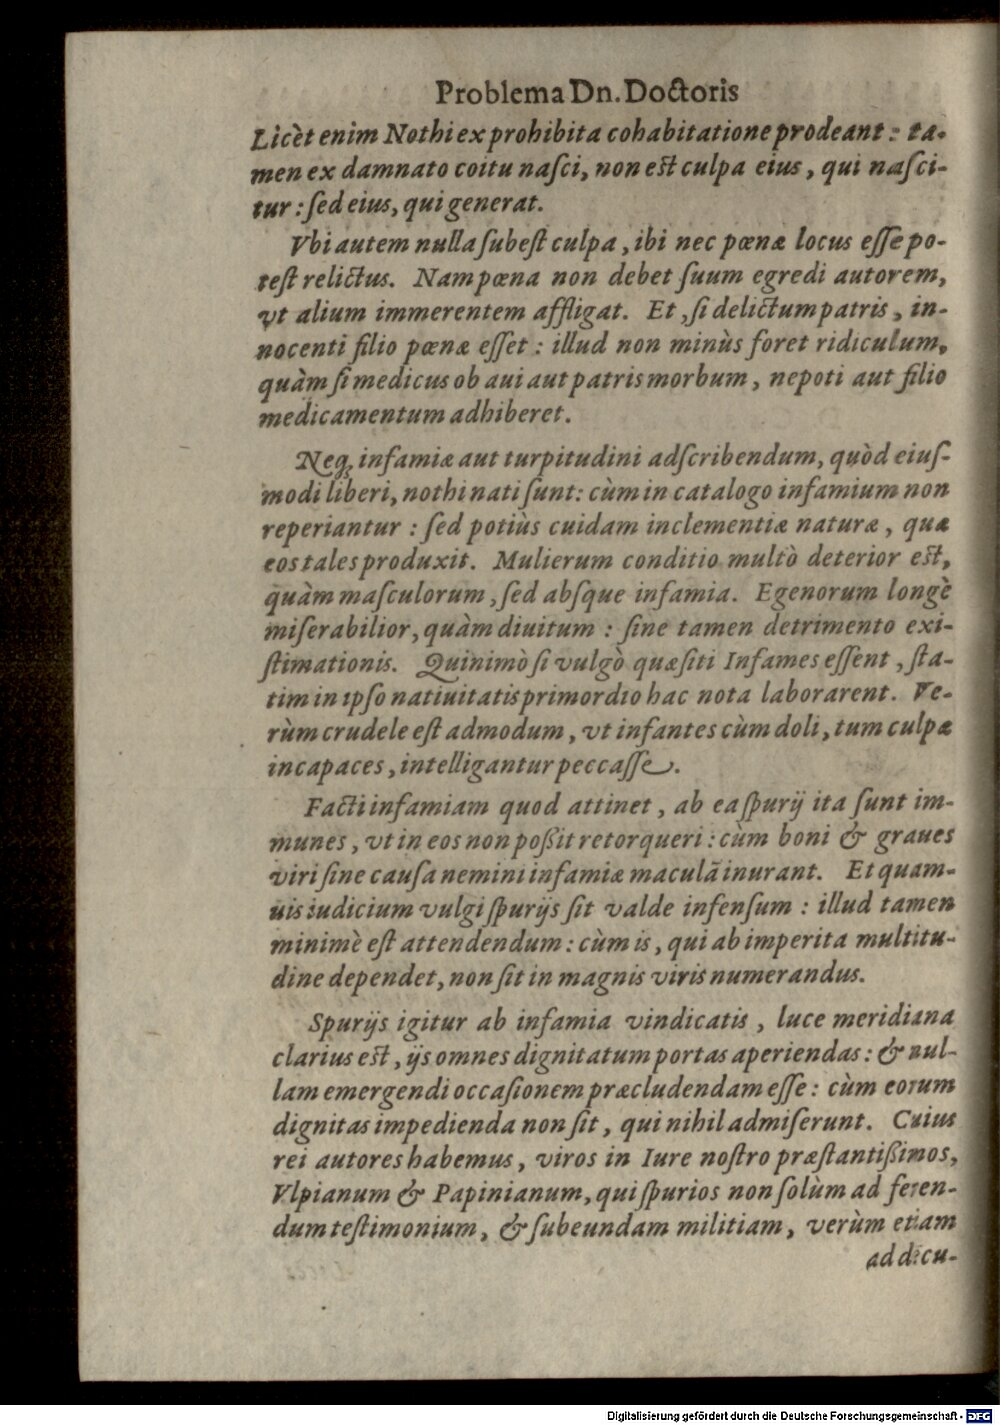 Problema Dn. Doctoris
Licèt enim Nothi ex prohibita cohabitatione prodeant: ta-
men ex damnato coitu naſci, non eſt culpa eius, qui naſci-
tur: ſed eius, qui generat.
Vbi autem nulla ſubeſt culpa, ibi nec pœnæ locus eſſe po-
teſt relictus. Nam pœna non debet ſuum egredi autorem,
vt alium immerentem affligat. Et, ſi delictum patris, in-
nocenti filio pœnæ eſſet: illud non minùs foret ridiculum,
quàm ſi medicus ob aui aut patris morbum, nepoti aut filio
medicamentum adhiberet.
Neq; infamiæ aut turpitudini adſcribendum, quòd eiuſ-
modi liberi, nothi nati ſunt: cùm in catalogo infamium non
reperiantur: ſed potiùs cuidam inclementiæ naturæ, quæ
eos tales produxit. Mulierum conditio multò deterior eſt,
quàm maſculorum, ſed abſque infamia. Egenorum longè
miſerabilior, quàm diuitum: ſine tamen detrimento exi-
ſtimationis. Quinimò ſi vulgò quæſiti Infames eſſent, ſta-
tim in ipſo natiuitatis primordio hac nota laborarent. Ve-
rùm crudele eſt admodum, vt infantes cùm doli, tum culpæ
incapaces, intelligantur peccaſſe.
Facti infamiam quod attinet, ab ea ſpurij ita ſunt im-
munes, vt in eos non poßit retorqueri: cùm boni & graues
viri ſine cauſa nemini infamiæ maculā inurant. Et quam-
uis iudicium vulgi ſpurijs ſit valde infenſum: illud tamen
minimè eſt attendendum: cùm is, qui ab imperita multitu-
dine dependet, non ſit in magnis viris numerandus.
Spurijs igitur ab infamia vindicatis, luce meridiana
clarius eſt, ijs omnes dignitatum portas aperiendas: & nul-
lam emergendi occaſionem præcludendam eſſe: cùm eorum
dignitas impedienda non ſit, qui nihil admiſerunt. Cuius
rei autores habemus, viros in Iure noſtro præſtantißimos,
Vlpianum & Papinianum, qui ſpurios non ſolùm ad feren-
dum teſtimonium, & ſubeundam militiam, verùm etiam
ad dicu-
Digitalisierung gefördert durch die Deutsche Forschungsgemeinschaft - DFG